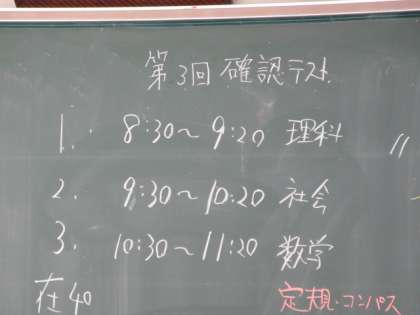 第3回 確認テスト
1. 8:30〜9:20 理科 〃
2. 9:30〜10:20 社会
3. 10:30〜11:20 数学
在40 定規・コンパス